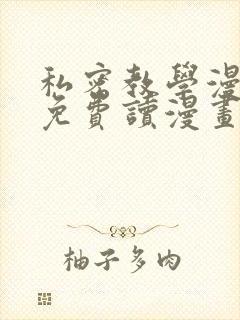 私密教學漫
免費讀漫畫
柚子多肉